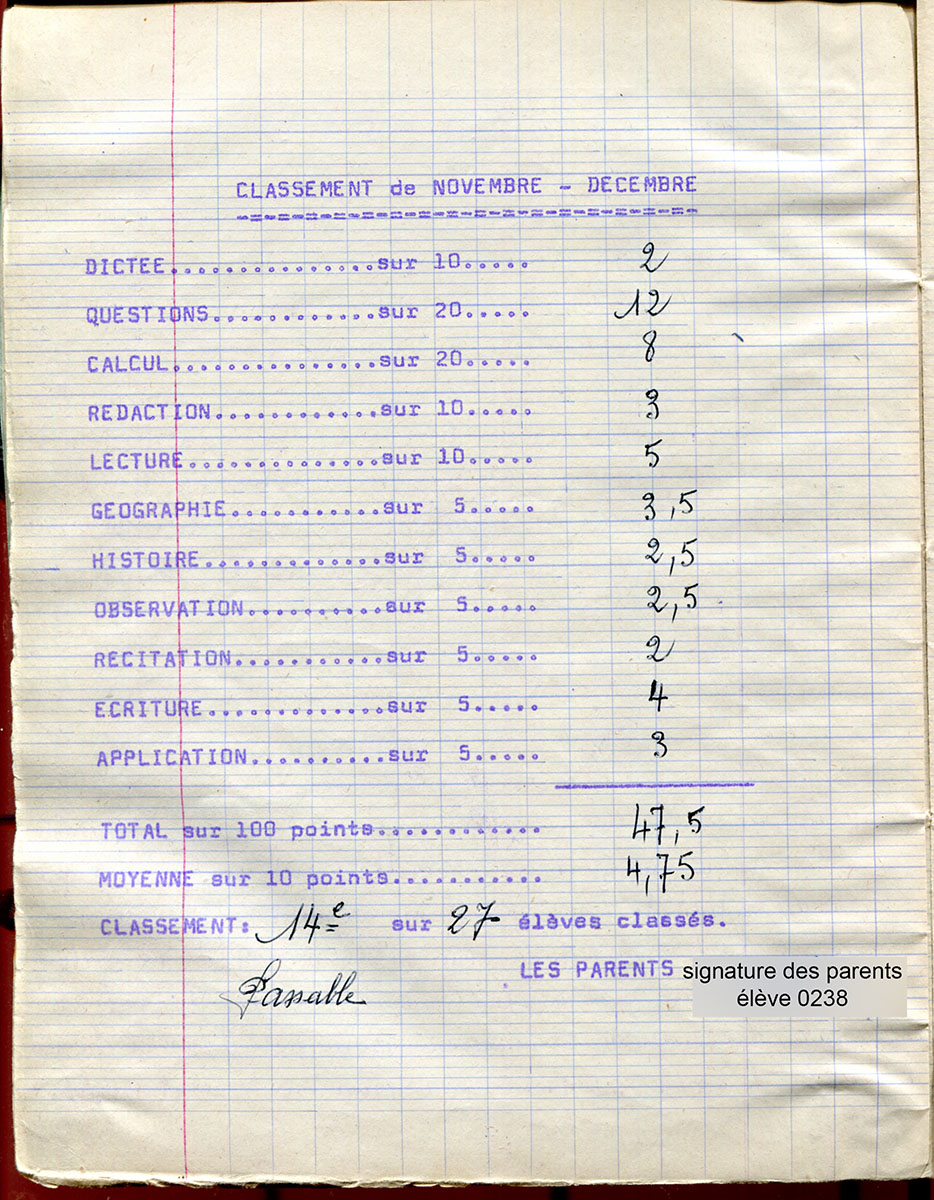 CLASSEMENT de NOVEMBRE - DECEMBRE
DICTEE.................sur 10..... 2
QUESTIONS.............sur 20..... 12
CALCUL.................sur 20..... 8
REDACTION.............sur 10..... 3
LECTURE...............sur 10..... 5
GEOGRAPHIE............sur 5..... 3,5
HISTOIRE..............sur 5..... 2,5
OBSERVATION...........sur 5..... 2,5
RECITATION............sur 5..... 2
ECRITURE..............sur 5..... 4
APPLICATION...........sur 5..... 3
TOTAL sur 100 points............ 47,5
MOYENNE sur 10 points........... 4,75
CLASSEMENT: 14e sur 27 élèves classés.
LES PARENTS signature des parents
élève 0238
Passable